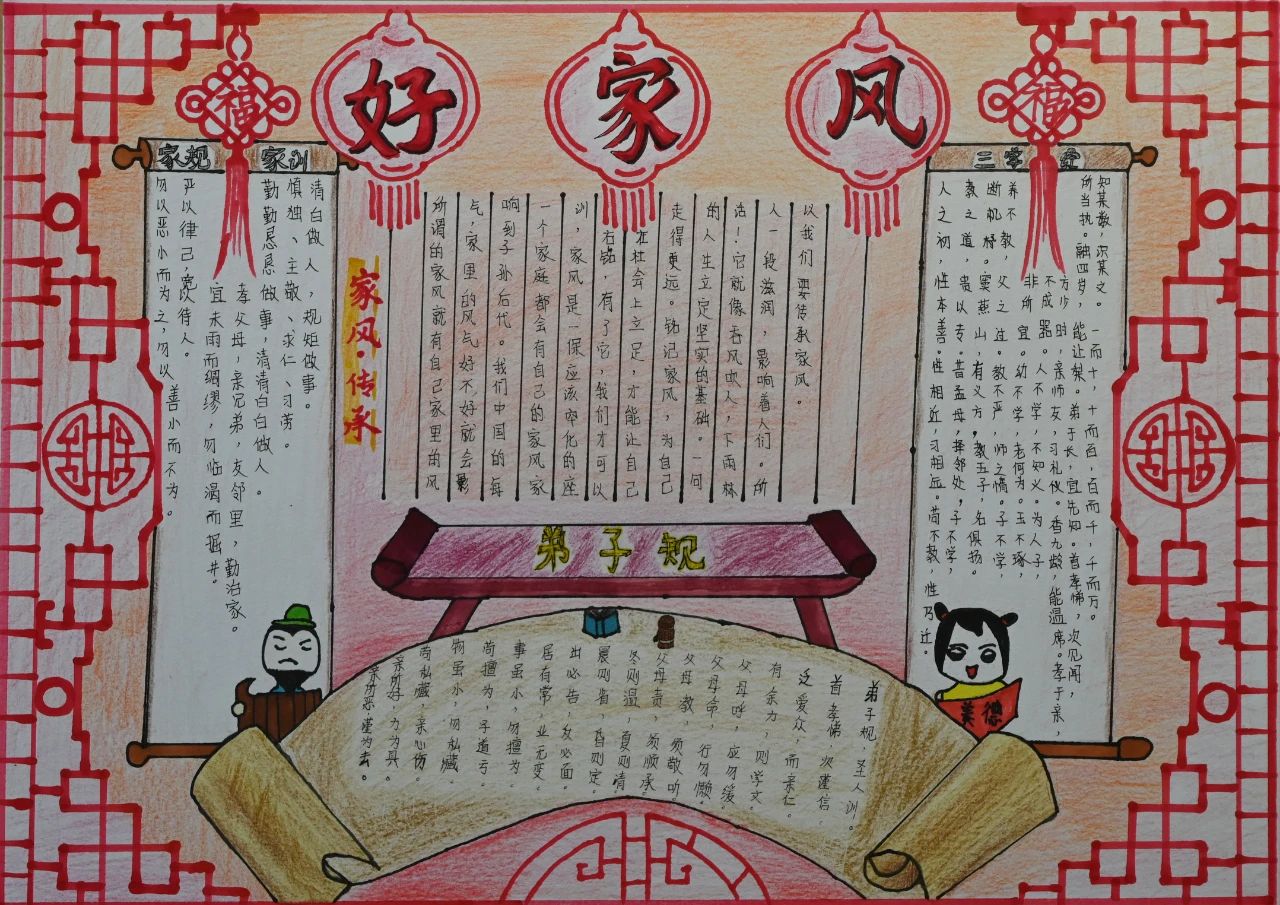 好家风
福
福
家规 家训
清白做人，规矩做事。
慎独、主敬、求仁、习劳。
勤勤恳恳做事，清清白白做人。
孝父母，亲兄弟，友邻里，勤治家。
宜未雨而绸缪，勿临渴而掘井。
严以律己，宽以待人。
勿以恶小而为之，勿以善小而不为。
家风·传承
所谓的家风就有自己家里的风
气，家里的风气好不好就会影
响到子孙后代。我们中国的每
一个家庭都会有自己的家风家
训，家风是一保应该空化的座
右铭，有了它，我们才可以
在社会上立足，才能让自己
走得更远。铭记家风，为自己
的人生立定坚实的基础。一同
话！它就像春风吹人，下雨林
人一段滋润，影响着人们。所
以我们要传承家风。
三字经
人之初，性本善。性相近，习相远。苟不教，性乃迁。
教之道，贵以专。昔孟母，择邻处，子不学，
断机杼。窦燕山，有义方，教五子，名俱扬。
养不教，父之过。教不严，师之惰。子不学，
非所宜。幼不学，老何为。玉不琢，
不成器。人不学，不知义。为人子，
方少时，亲师友，习礼仪。香九龄，能温席。孝于亲，
所当执。融四岁，能让梨。弟于长，宜先知。首孝悌，次见闻，
知某数，识某文。一而十，十而百，百而千，千而万。
弟子规
弟子规 圣人训。
首孝悌，次谨信。
泛爱众，而亲仁。
有余力，则学文。
父母呼，应勿缓。
父母命，行勿懒。
父母教，须敬听。
父母责，须顺承。
冬则温，夏则清。
晨则省，昏则定。
出必告，反必面。
居有常，业无变。
事虽小，勿擅为。
苟擅为，子道亏。
物虽小，勿私藏。
苟私藏，亲心伤。
亲所好，力为具。
亲所恶，谨为去。
美德